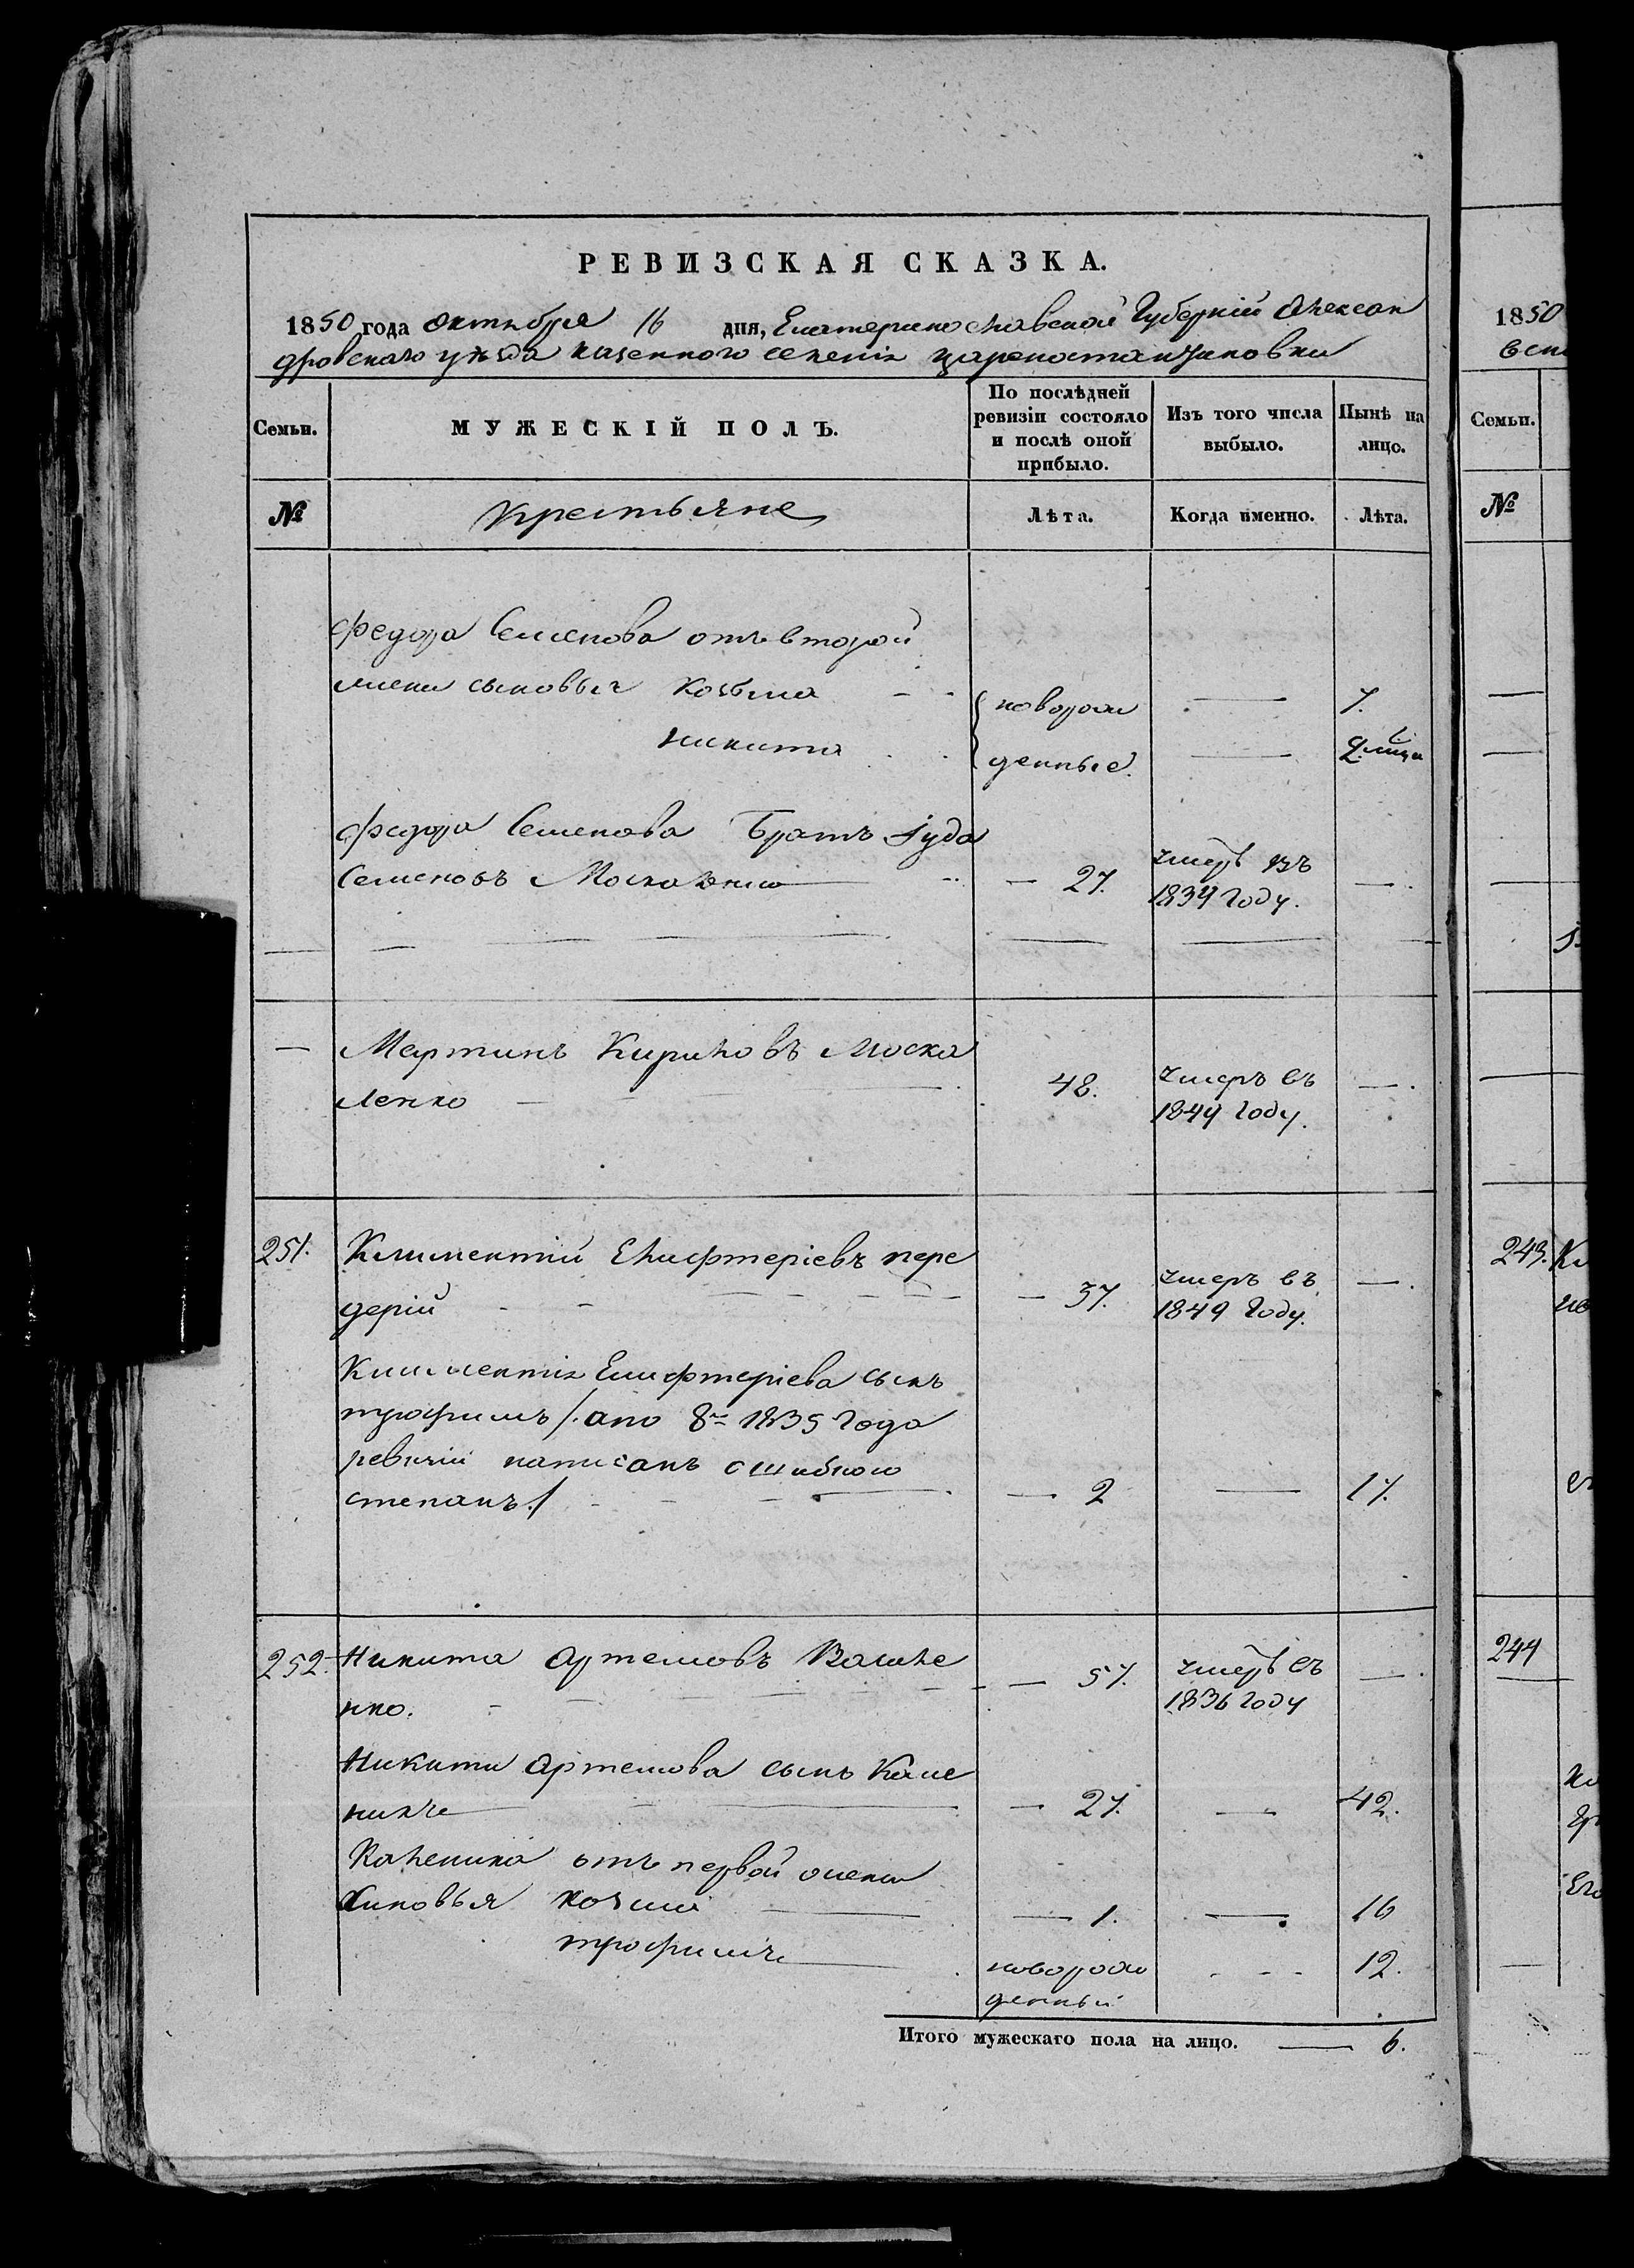 РЕВИЗСКАЯ СКАЗКА.
1850 года октября 16 дня, Екатеринославской Губерніи Алексан
дровского уѣзда казенного селенія Цареконстантиновки
Семьи.
МУЖЕСКІЙ ПОЛЪ.
По послѣдней
ревизіи состояло
и послѣ оной
прибыло.
Изъ того числа
выбыло.
Нынѣ на
лицо.
№
крестьяне
Лѣта.
Когда именно.
Лѣта.
Федора Семенова отъ второй
жены сыновья Козьма новорож 7.
никита денные.
Федора Семенова Братъ Іуда
Семеновъ Москаленко 27. умеръ въ
1834 году.
Мартинъ Кириловъ Моска
ленко 48. умеръ въ
1844 году.
251. Климентій Елифтеріевъ пере
дерій 37. умеръ въ
1849 году.
Климентія Елифтеріева сынъ
трофимъ /: а по 8й 1835 года
ревизіи написанъ ошибкою
степанъ :/ 2 17.
252. Никита Артемовъ
нко. 57. умеръ въ
1836 году
Никиты Артемова сынъ Кале
никъ 27. 42.
Каленика отъ первой жены
сыновья козма 1. 16
трофимъ новорож 12.
денный
Итого мужескаго пола на лицо. 6.
1850
Семьи.
№
243.
244